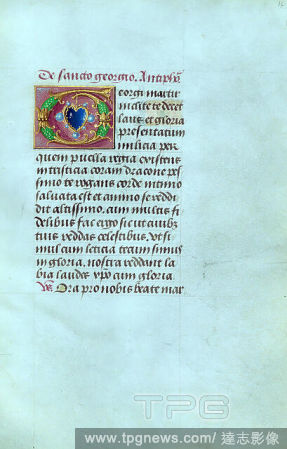 De sancto georgio. Antiphõ
Georgi martir
inclite te decet
laus et gloria
presentatum
milicia per
quem puella regia existens
in tristicia coram dracone pes
simo te rogans corde intimo
saluata est et animo se reddi
dit altissimo, cum multis fi
delibus fac ergo
reddas celestibus, vt si
mul cum leticia
in gloria, nostra reddant la
bia laudes xpo cum gloria.
Ora pro nobis beate mar
TPG
www.tpgnews.com/ 達志影像